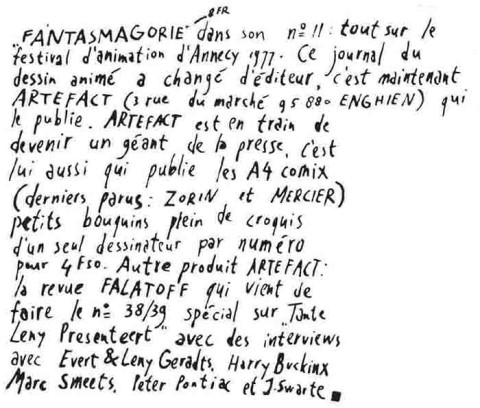 8FR
"FANTASMAGORIE" dans son nº 11 : tout sur le
festival d'animation d'Annecy 1977. Ce journal du
dessin animé a changé d'éditeur, c'est maintenant
ARTEFACT (3 rue du marché 95880 ENGHIEN) qui
le publie. ARTEFACT est en train de
devenir un géant de la presse, c'est
lui aussi qui publie les A4 comix
(derniers parus : ZORIN et MERCIER)
petits bouquins plein de croquis
d'un seul dessinateur par numéro
pour 4F50. Autre produit ARTEFACT:
la revue FALATOFF qui vient de
faire le nº 38/39 spécial sur "Tante
Leny Presenteert" avec des interviews
avec Evert & Leny Geradts, Harry Buckinx
Marc Smeets, Peter Pontiac et J.Swarte ■